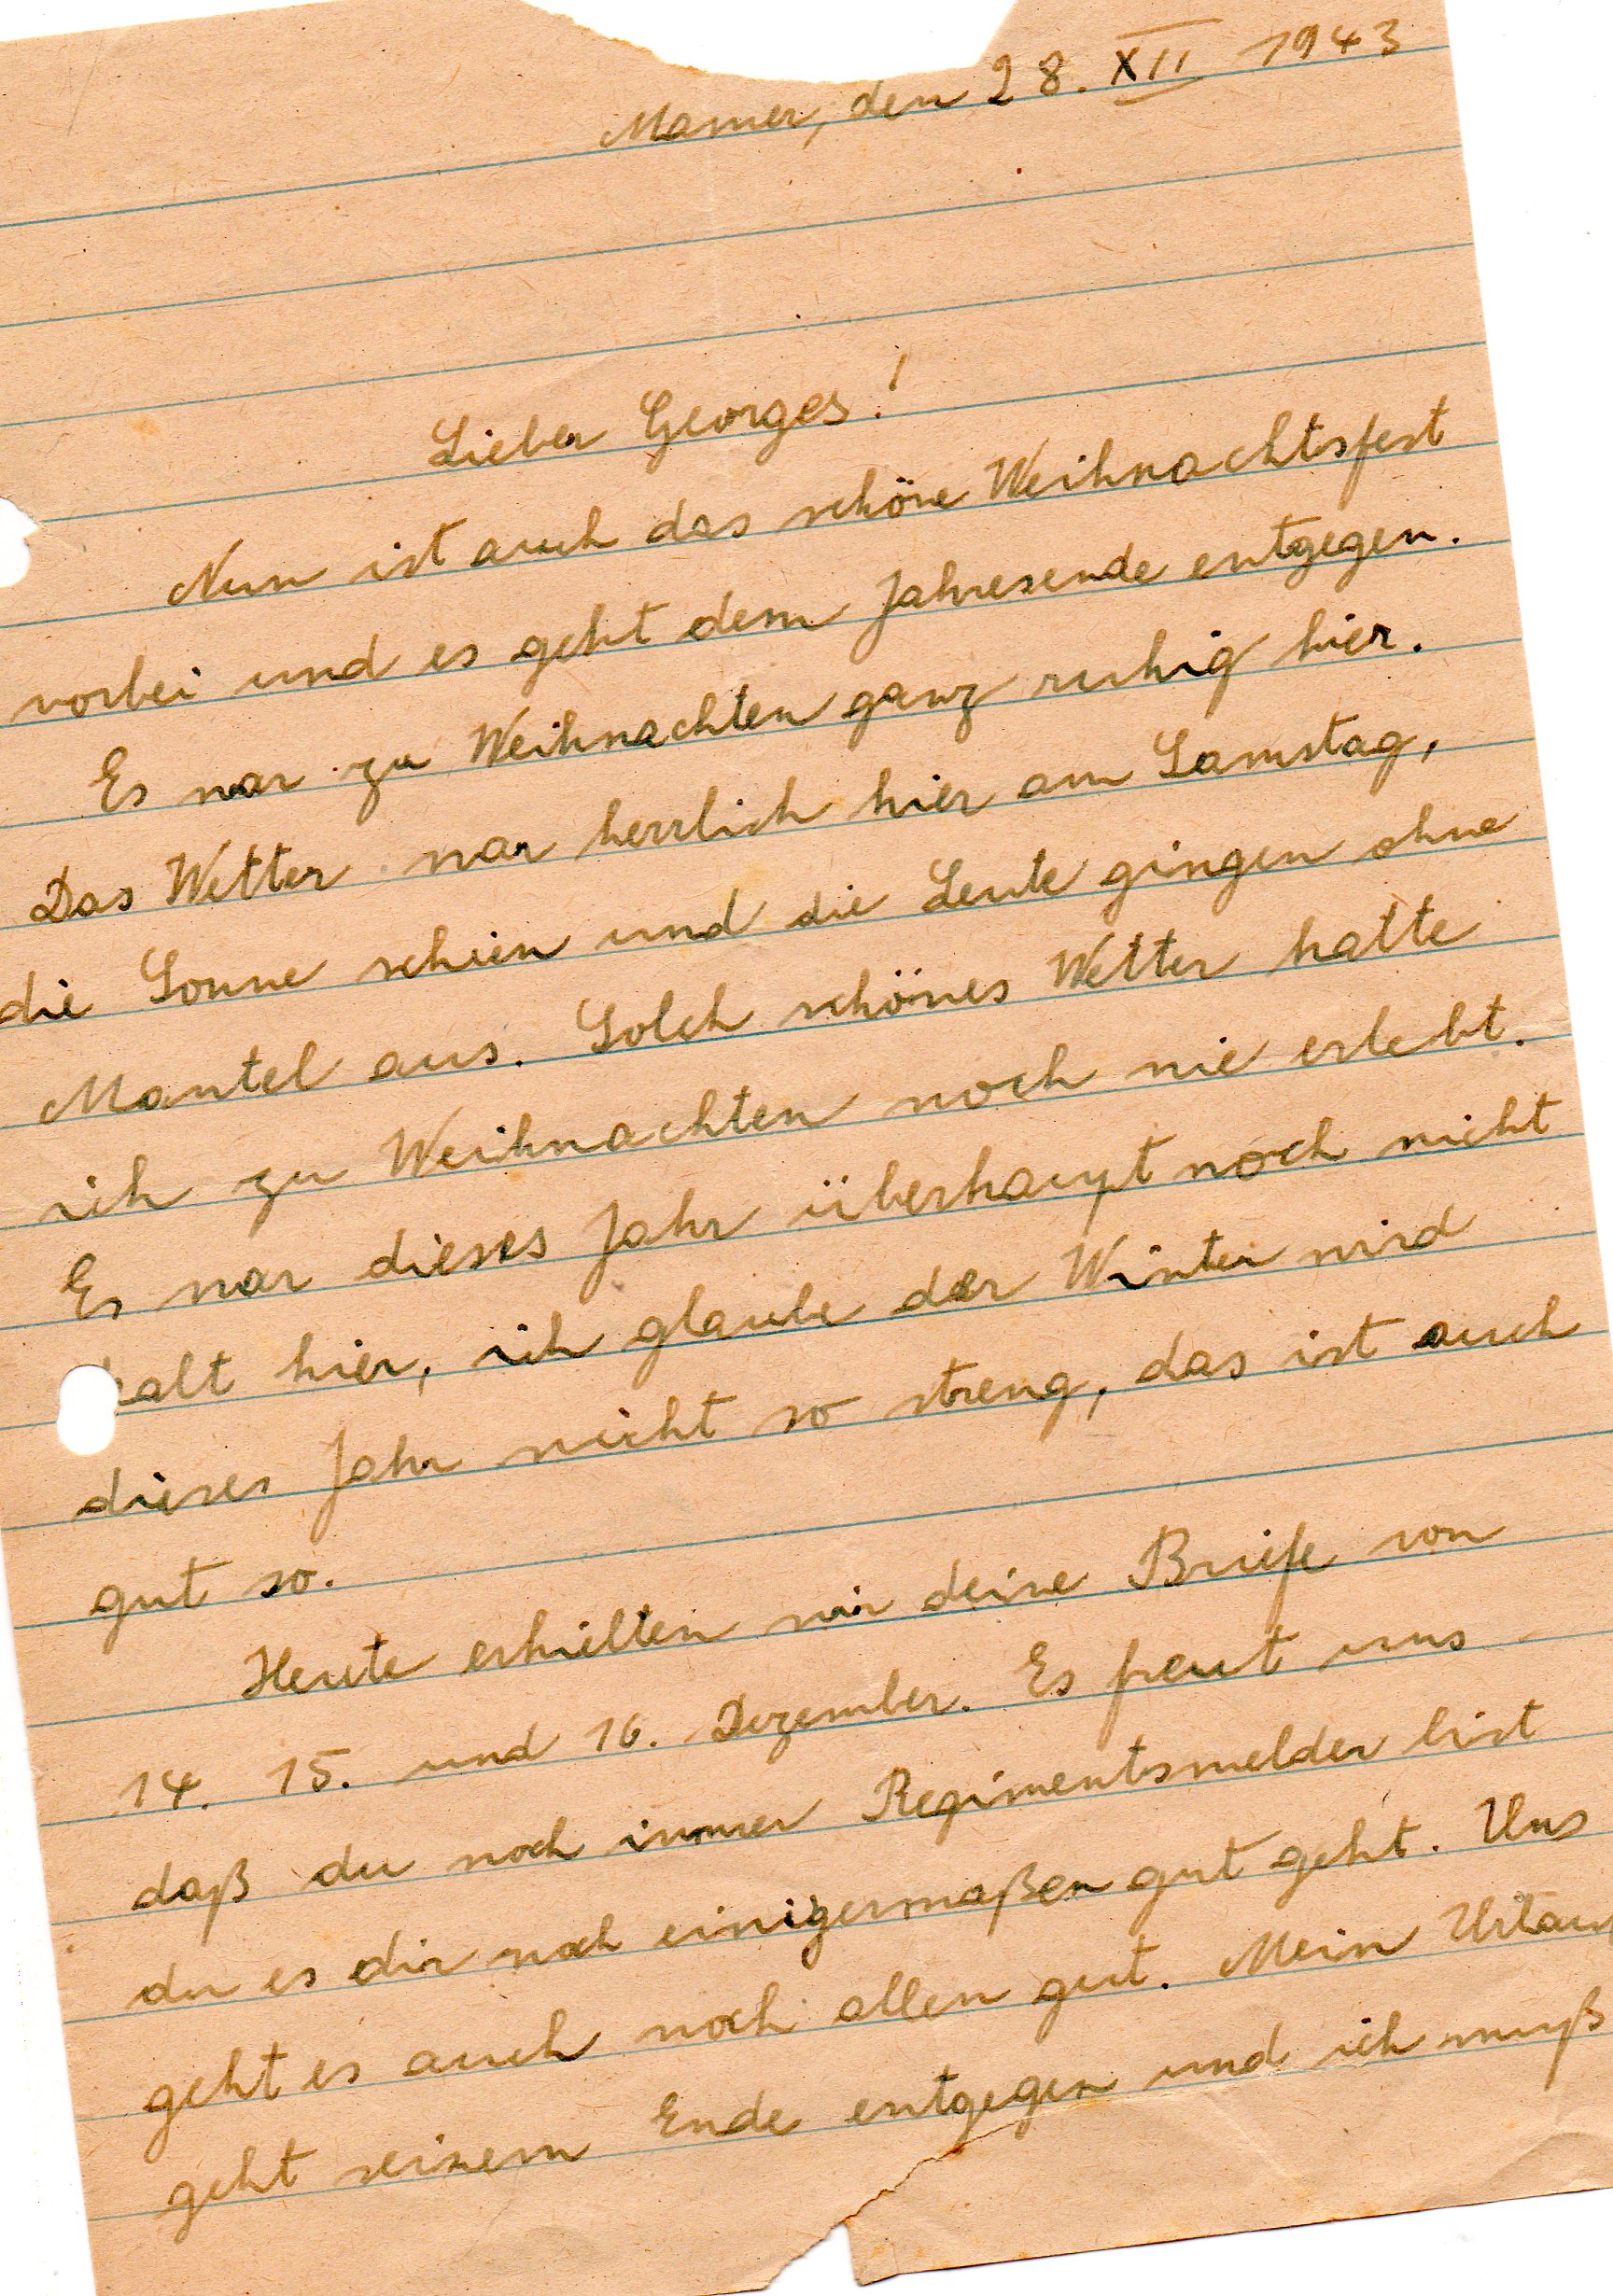 Mamer, den 28. XII 1943
Lieber Georges!
Nun ist auch das schöne Weihnachtsfest
vorbei und es geht dem Jahresende entgegen.
Es war zu Weihnachten ganz ruhig hier.
Das Wetter war herrlich hier am Samstag,
die Sonne schien und die Leute gingen ohne
Mantel aus. Solch schönes Wetter hatte
ich zu Weihnachten noch nie erlebt.
Es war dieses Jahr überhaupt noch nicht
kalt hier, ich glaube der Winter wird
dieses Jahr nicht so streng, das ist auch
gut so.
Heute erhielten wir deine Briefe von
14. 15. und 16. Dezember. Es freut uns
daß du noch immer Regimentsmelder bist
du es dir noch einigermaßen gut geht. Uns
geht es auch noch allen gut. Mein Urlaub
geht seinem Ende entgegen und ich muß